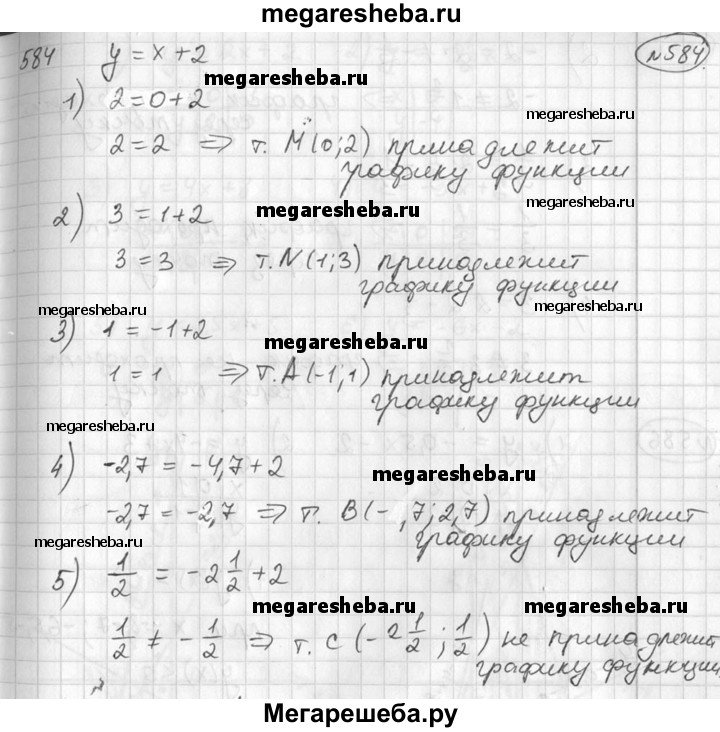 megaresheba.ru
584 y = x + 2 №584
megaresheba.ru
1) 2 = 0 + 2
2 = 2 ⇒ т. M (0; 2) принадлежит
графику функции
megaresheba.ru
2) 3 = 1 + 2 megaresheba.ru
3 = 3 ⇒ т. N (1; 3) принадлежит
графику функции
megaresheba.ru megaresheba.ru
3) 1 = -1 + 2 megaresheba.ru
1 = 1 ⇒ т. A (-1; 1) принадлежит
графику функции
megaresheba.ru
4) -2,7 = -4,7 + 2 megaresheba.ru
-2,7 = -2,7 ⇒ т. B (- ,7; 2,7) принадлежит
графику функции
megaresheba.ru
5) 1/2 = -2 1/2 + 2
megaresheba.ru megaresheba.ru
1/2 ≠ - 1/2 ⇒ т. C (-2 1/2; 1/2) не принадлежит
графику функции
Мегарешеба.ру